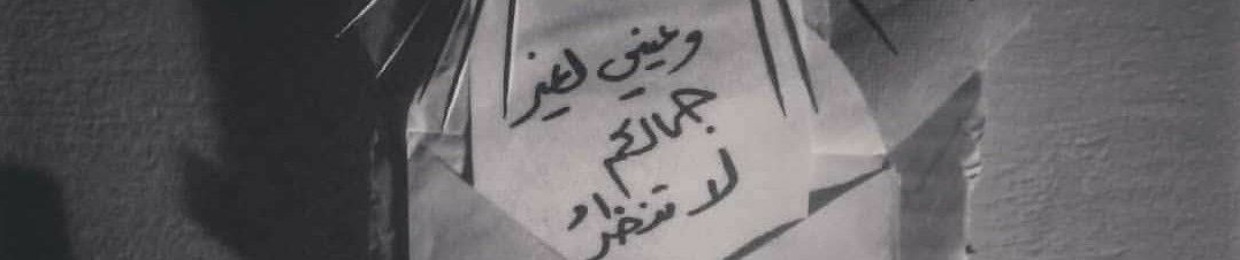 وعيني لغير
جمالكم
لا تنضرُ